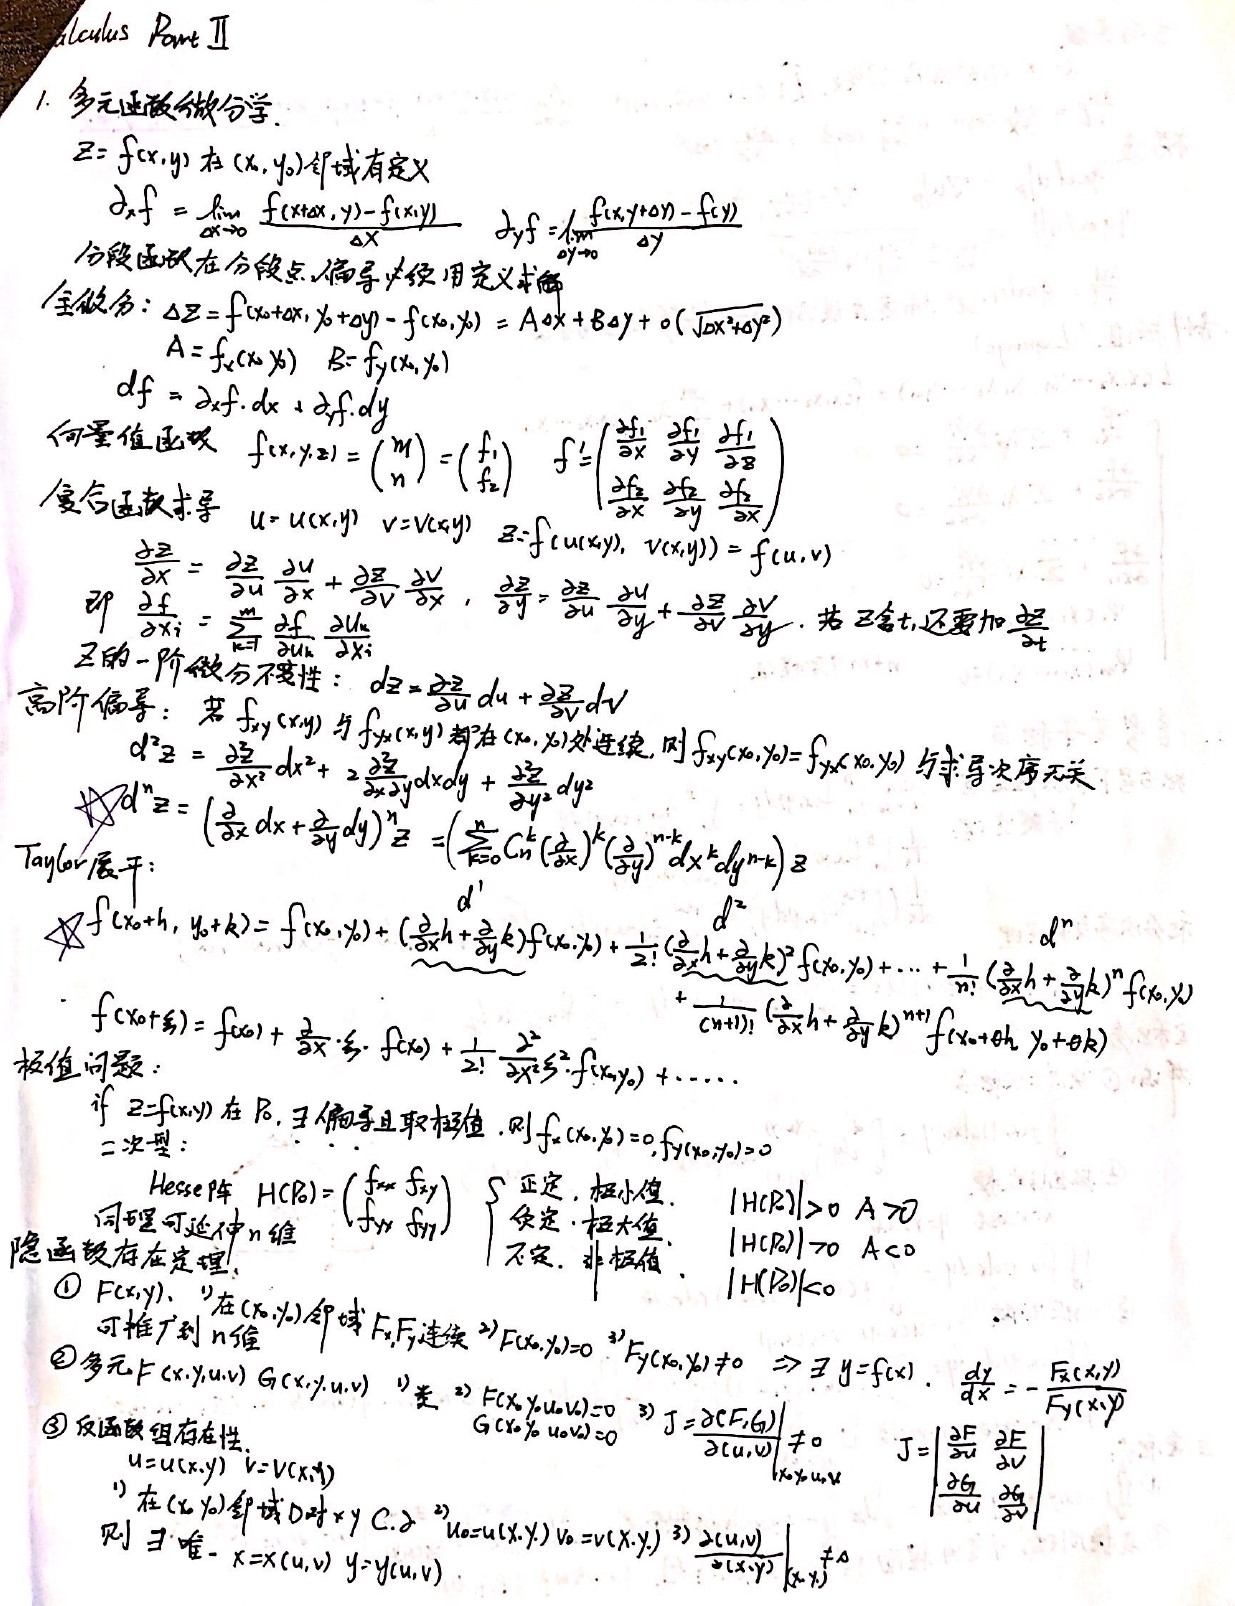 alculus Part II
1. 多元函数微分学.
Z = f(x,y) 在 (x₀, y₀) 邻域有定义
∂ₓf = lim_{Δx→0} (f(x+Δx, y) - f(x,y))/Δx  ∂yf = lim_{Δy→0} (f(x,y+Δy) - f(y))/Δy
分段函数在分段点,偏导必须用定义求解
全微分: ΔZ = f(x₀+Δx, y₀+Δy) - f(x₀,y₀) = AΔx + BΔy + o(√(Δx²+Δy²))
A = fₓ(x₀ y₀)  B = f_y(x₀,y₀)
df = ∂ₓf·dx + ∂yf·dy
向量值函数 f(x,y,z) = (m n) = (f₁ f₂)  f' = (∂f₁/∂x ∂f₁/∂y ∂f₁/∂z ; ∂f₂/∂x ∂f₂/∂y ∂f₂/∂x)
复合函数求导 u = u(x,y) v = v(x,y) z = f(u(x,y), v(x,y)) = f(u,v)
∂z/∂x = ∂z/∂u ∂u/∂x + ∂z/∂v ∂v/∂x , ∂z/∂y = ∂z/∂u ∂u/∂y + ∂z/∂v ∂v/∂y . 若 Z含t,还要加 ∂z/∂t
即 ∂f/∂xᵢ = Σ_{k=1}^{m} ∂f/∂u_k ∂u_k/∂xᵢ
Z的一阶微分不变性: dz = ∂z/∂u du + ∂z/∂v dv
高阶偏导: 若 f_xy(x,y) 与 f_yx(x,y) 都在 (x₀, y₀)处连续, 则 f_xy(x₀,y₀) = f_yx(x₀,y₀) 与求导次序无关
d²z = ∂²z/∂x² dx² + 2 ∂²z/∂x∂y dxdy + ∂²z/∂y² dy²
☆ dⁿz = (∂/∂x dx + ∂/∂y dy)ⁿ z = (Σ_{k=0}^{n} C_n^k (∂/∂x)^k (∂/∂y)^{n-k} dx^k dy^{n-k}) z
Taylor展开:
d¹ d² dⁿ
☆ f(x₀+h, y₀+k) = f(x₀,y₀) + (∂/∂x h + ∂/∂y k) f(x₀,y₀) + 1/2! (∂/∂x h + ∂/∂y k)² f(x₀,y₀) + ... + 1/n! (∂/∂x h + ∂/∂y k)ⁿ f(x₀,y₀)
+ 1/(n+1)! (∂/∂x h + ∂/∂y k)^{n+1} f(x₀+θh y₀+θk)
f(x₀+ξ) = f(x₀) + ∂/∂x·ξ· f(x₀) + 1/2! ∂²/∂x² ξ²·f(x₀,y₀) + ......
极值问题:
if z=f(x,y) 在 P₀, ∃偏导且取极值, 则 fₓ(x₀,y₀)=0, f_y(x₀,y₀)=0
二次型:
Hesse阵 H(P₀) = (fxx fxy ; fyx fyy) { 正定, 极小值. |H(P₀)|>0 A>0
同理可延伸 n维 负定. 极大值. |H(P₀)|>0 A<0
不定. 非极值. |H(P₀)|<0
隐函数存在定理.
① F(x,y), 1) 在 (x₀,y₀) 邻域 Fₓ,F_y连续 2) F(x₀,y₀)=0 3) F_y(x₀,y₀)≠0 ⇒ ∃ y=f(x). dy/dx = - Fₓ(x,y)/F_y(x,y)
可推广到 n维
② 多元 F(x,y,u,v) G(x,y,u,v) 1) 类 2) F(x₀ y₀ u₀ v₀)=0 G(x₀ y₀ u₀ v₀)=0 3) J = ∂(F,G)/∂(u,v)|x₀ y₀ u₀ v₀ ≠0 J = |∂F/∂u ∂F/∂v ; ∂G/∂u ∂G/∂v|
③ 反函数组存在性.
u=u(x,y) v=v(x,y)
1) 在 (x₀ y₀) 邻域D对 x y C.∂ 2) u₀=u(x₀ y₀) v₀=v(x₀ y₀) 3) ∂(u,v)/∂(x,y)|(x₀ y₀) ≠0
则 ∃ 唯一 x=x(u,v) y=y(u,v).